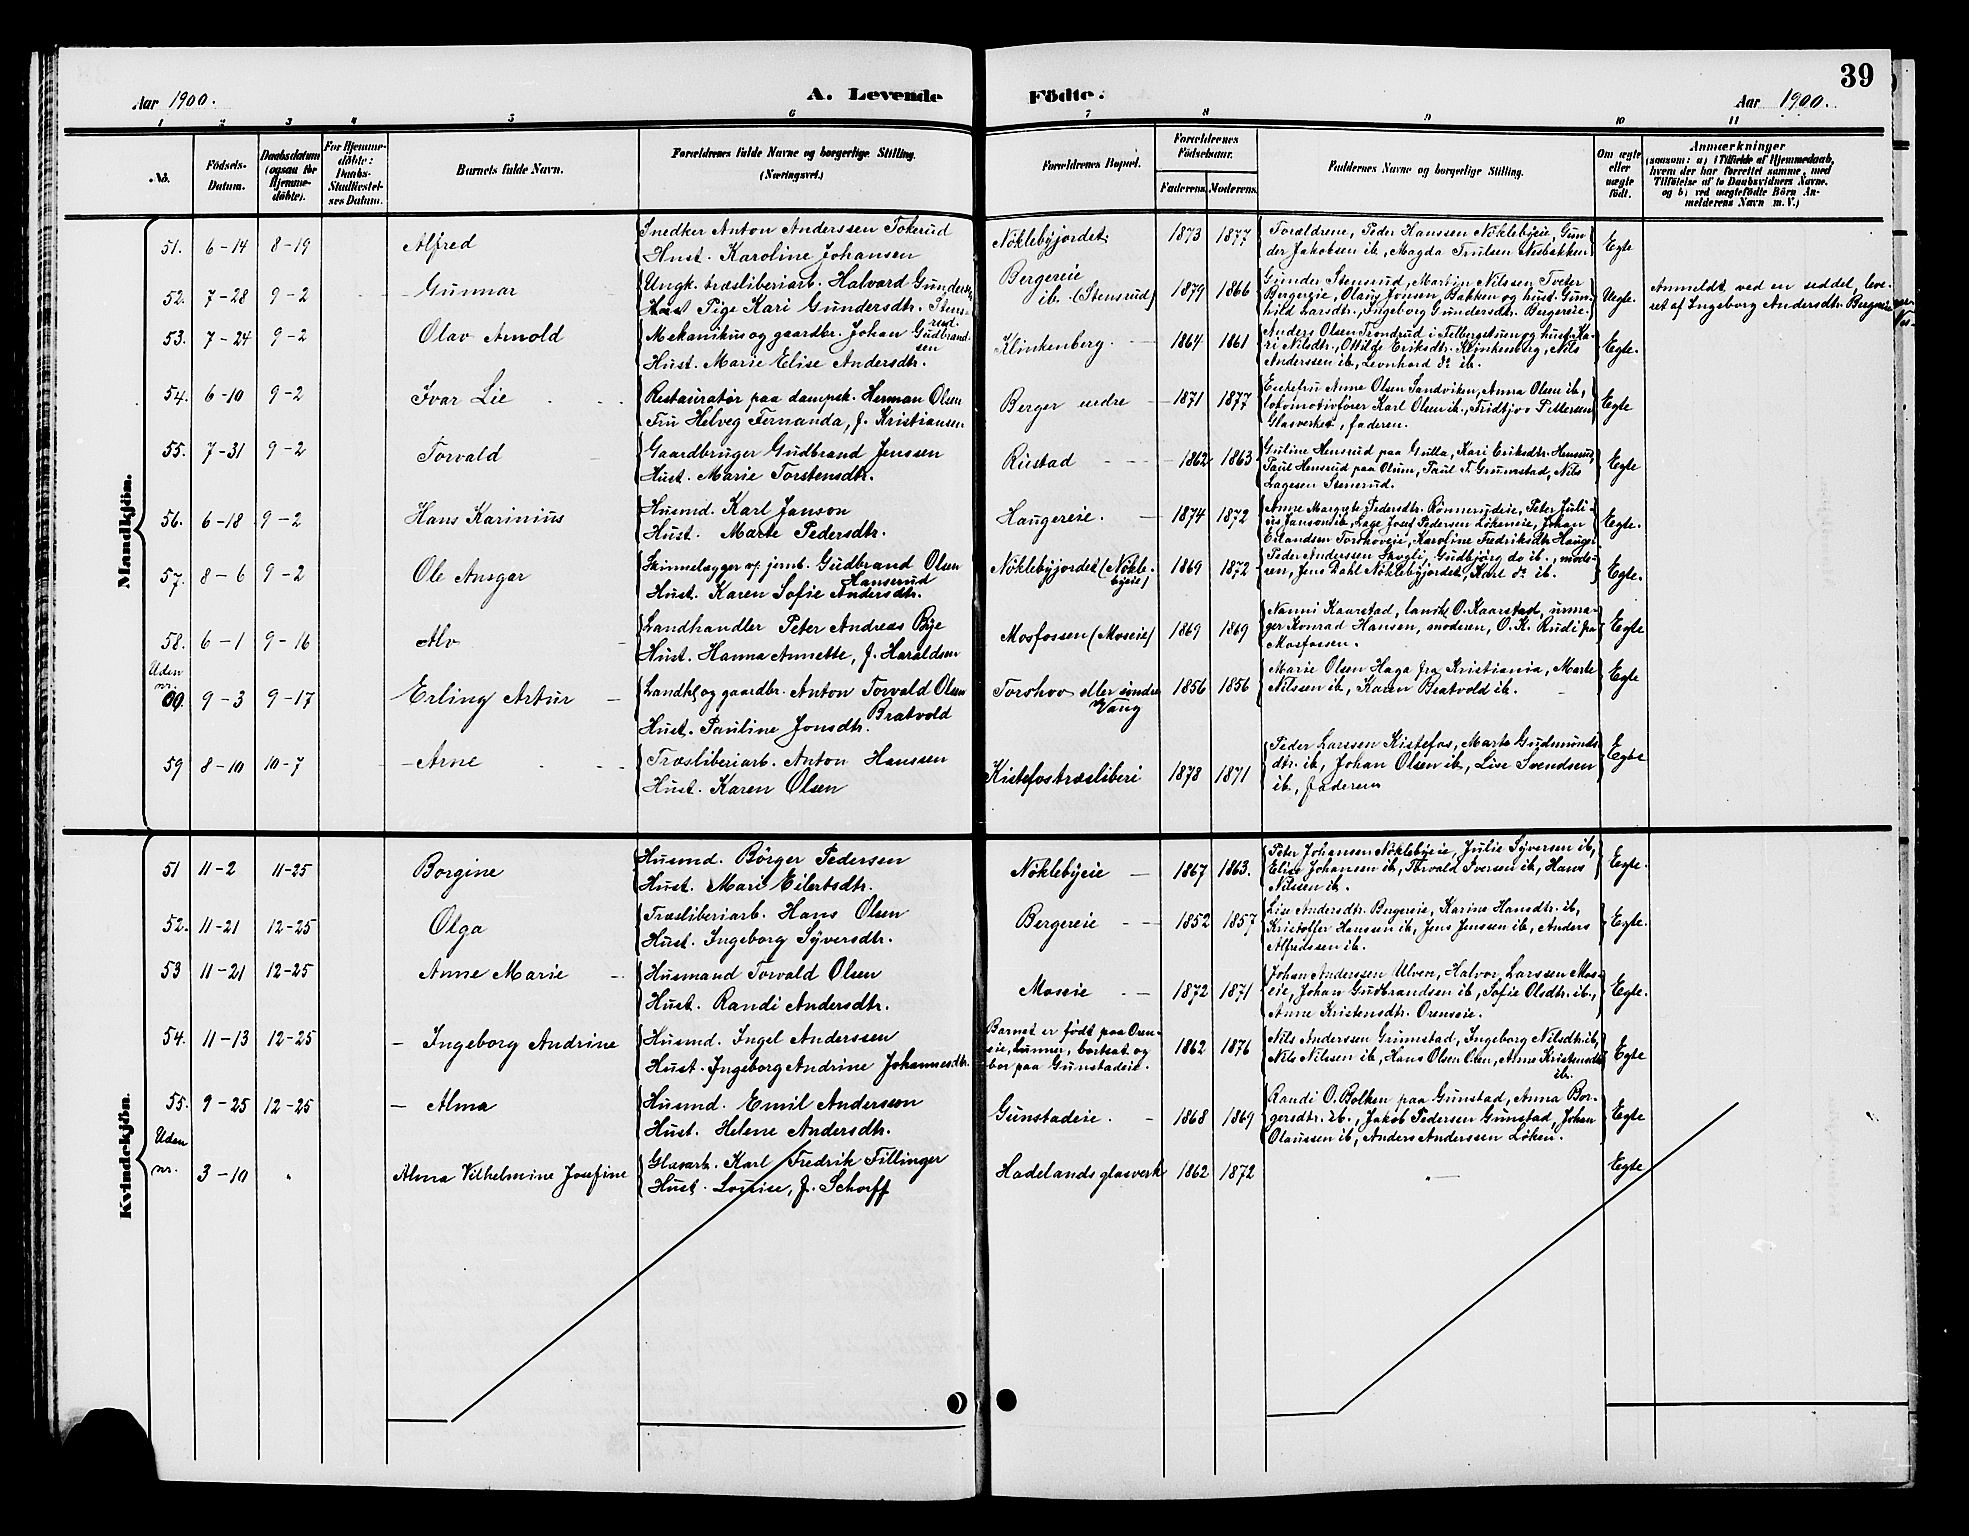 Aar 1900. A. Levende Födte. Aar 1900. 39
1 2 3 4 5 6 7 8 9 10 11
No. Födsels-Datum. Daabsdatum (ogsaa for Hjemme-döbte). For Hjemme-döbte: Daabs-Stadfæstel-ses Datum. Barnets fulde Navn. Forældrenes fulde Navne og borgerlige Stilling. (Næringsvei.) Forældrenes Bopæl. Forældrenes Födselsaar. Faderens. Moderens. Faddernes Navne og borgerlige Stilling. Om ægte eller uægte födt. Anmærkninger (saasom: a) i Tilfælde af Hjemmedaab, hvem der har forrettet samme, med Tilföielse af to Daabsvidners Navne, og b) ved uægtefödte Börn An-melderens Navn m. V.)
Mandkjön.
51. 6-14 8-19 Alfred
Snedker Anton Anderssen Tokerud
Hust. Karoline Johansen
Nöklebyjordet. 1873 1877
Forældrene, Peder Hanssen Nöklebyeie, Gun-
der Jakobsen ib, Magda Trulsen Nesbakken
Egte
52. 7-28 9-2 Gunnar
Ungk. træsliberiarb. Halvard Gundersen
Pige Kari Gundersdtr. Stens-
rud.
Bergereie
ib. (Stensrud) 1879 1866
Gunder Stensrud, Martin Nilsen Tveter
Bergereie, Olaus Jonsen, Bakken og hust. Gun-
hild Larsdtr., Ingeborg Gundersdtr. Bergereie.
Uegte.
Anmeldt ved en seddel, leve-
ret af Ingeborg Andersdtr. Bergereie
53. 7-24 9-2 Olav Arnold
Mekanikus og gaardbr. Johan Gudbrand-
sen
Hust. Marie Elise Andersdtr.
Klinkenberg. 1864 1861
Anders Olsen Trondrud i og hust. Ka-
ri Nilsdtr., Otilde Eriksdtr. Klinkenberg, Nils
Anderssen ib, Leonhard do ib.
Egte.
54. 6-10 9-2 Ivar Lie
Restauratør paa dampsk. Herman Olsen
Fru Helveg Fernanda, f. Kristiansen
Berger nedre 1871 1877
Enkefru Anne Olsen Sandviken, Anna Olsen ib,
lokomotivfører Karl Olsen ib., Fridtjov Pettersen
Glasverket, faderen.
Egte
55. 7-31 9-2 Torvald
Gaardbruger Gudbrand Jenssen
Hust. Marie Torstensdtr.
Rustad 1862 1863
Guline Hensrud paa Gulla, Kari Eriksdtr. Hensrud,
Paul Hensrud paa Olum, Paul T. Grumstad, Nils
Lagesen Stensrud.
Egte
56. 6-18 9-2 Hans Karinius
Husmd. Karl Janson
Hust. Marte Pedersdtr.
Haugereie. 1874 1872
Anne Margrete Pedersdtr. Rönnerudeie, Peter Juli-
us Jansen ib, Lage Josef Pedersen Lökeneie, Johan
Erlandsen Torshoveie, Karoline Fredriksdtr. Hauger
Egte.
57. 8-6 9-2 Ole Ansgar
Skinnelægger v/ jernb. Gudbrand Olsen
Hansrud
Hust. Karen Sofie Andersdtr.
Nöklebyjordet (Nökle-
byeie) 1869 1872
Peder Anderssen Skogli, Gudbjörg do ib., mode-
ren, Jens Dahl Nöklebyjordet, Karl do ib.
Egte.
58. 6-1 9-16 Alv
Landhandler Peter Andreas Bye
Hust. Hanna Annette, f. Haraldsen
Mosfossen (Moseie) 1869 1869
Nanni Kaarstad, landh. O. Kaarstad, urma-
ger Konrad Hansen, moderen, O. K. Rudi fra
Mosfossen.
Egte
Uden
nr. 9-3 9-17 Erling Artur
Landh. og gaardbr. Anton Torvald Olsen
Bratvold
Hust. Pauline Jonsdtr.
Torshov eller söndre
Vang 1856 1856
Marie Olsen Haga fra Kristiania, Marte
Nilssen ib, Karen Bratvold ib.
Egte
59 8-10 10-7 Arne
Træsliberiarb. Anton Hanssen
Hust. Karen Olsen
Kistefos træsliberi 1878 1871
Peder Larssen Kistefos, Marte Gudmunds-
dtr. ib, Johan Olsen ib, Lise Svendsen
ib, faderen
Egte
Kvindekjön.
51 11-2 11-25 Borgine
Husmd. Börger Pedersen
Hust. Mari Eilertsdtr.
Nöklebyeie 1867 1863.
Peter Johansen Nöklebyeie, Julie Syversen ib,
Elise Johansen ib, Torvald Iversen ib, Hans
Nilsen ib.
Egte.
52. 11-21 12-25 Olga
Træsliberiarb. Hans Olsen
Hust. Ingeborg Syversdtr.
Bergereie 1852 1857
Lise Andersdtr. Bergereie, Karine Hansdtr. ib,
Kristoffer Hanssen ib, Jens Jenssen ib, Anders
Alfredssen ib.
Egte.
53 11-21 12-25 Anne Marie
Husmand Torvald Olsen
Hust. Randi Andersdtr.
Moseie 1872 1871
Johan Anderssen Ulven, Halvor Larssen Mos-
eie, Johan Gudbrandsen ib, Sofie Olsdtr. ib.,
Anne Kristensdtr. Orenseie.
Egte.
54. 11-13 12-25 Ingeborg Andrine
Husmd. Ingel Anderssen
Hust. Ingeborg Andrine Johannesdtr.
Barnet er födt paa Oren-
eie, Lunner, bortsat og
bor paa Gunstadeie. 1862 1876
Nils Anderssen Grimstad, Ingeborg Nilsdtr. ib,
Nils Nilsen ib, Hans Olsen Olen, Anne Kristensdtr
ib.
Egte
55. 9-25 12-25 Alma
Husmd. Emil Andersson
Hust. Helene Andersdtr.
Gunstadeie. 1868 1869
Randi O. Bolken paa Gunstad, Anna Bor-
gersdtr. ib., Jakob Pedersen Gunstad, Johan
Olaussen ib, Anders Anderssen Løken.
Egte
Uden
nr. 3-10 " Alma Vilhelmine Josefine
Glasarb. Karl Fredrik Fillinger
Hust. Louise, f. Schorff
Hadelands glasverk 1862 1872
" Egte